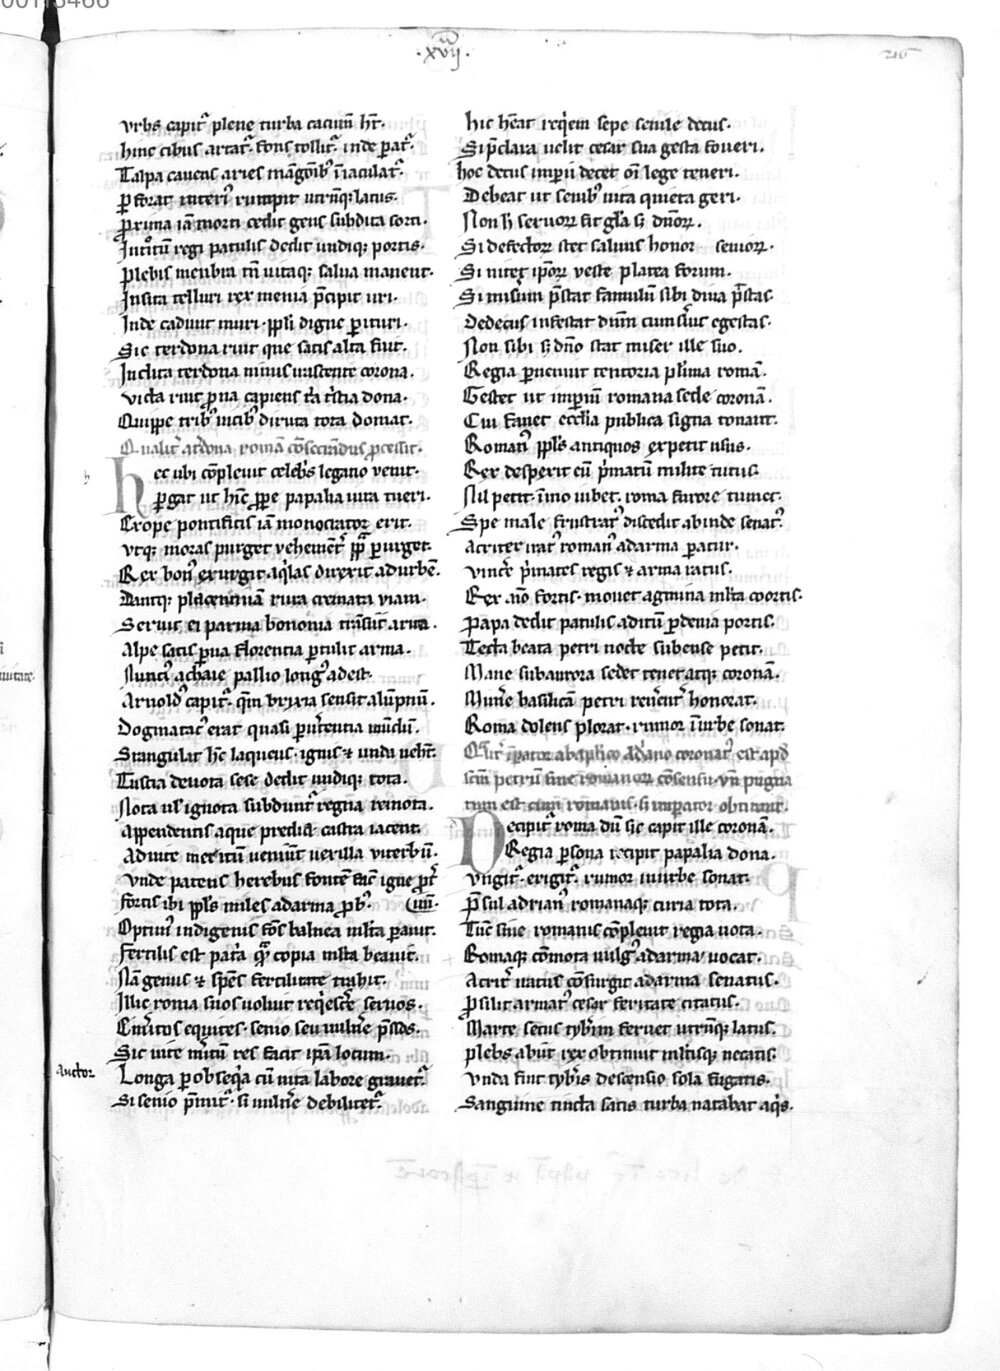 ·xvii·
216
vrbs capit᷑ plene turba cacum̄ hꝫ.
hinc cibus artat᷑· fons tollit᷑· inde ꝑat᷑.
Talpa cauens aries māgōibꝰ iaculat᷑.
ꝑforat interiꝰ rumpit utrūqꝫ latus.
ꝓxima iā morti cedit gens subdita sorti.
plebis menbra tm̄ uitaqꝫ salua manent.
Insita telluri rex menia p̄cipit uri.
Inde cadunt muri· ppl̄i digne ꝑituri.
Sic terdona ruit que satis alta fuit.
Inclita terdona minus uastente corona.
victa ruit ꝓna capiens
Quippe tribꝰ uicibꝰ diruta tota domat.
Qualit᷑ romā cōsecrandus ꝓcessit.
hec ubi cōpleuit celebs legano venit.
ꝑgat ut hūc ꝓpe papalia iura tueri.
Crope pontificis iā monocrator erit.
vtqꝫ moras purget vehement᷑ ꝑurget.
Rex bonꝰ exurgit· aq̄las direxit ad urbē.
Dantqꝫ placentinam rura cremata viam.
Seruit ei parma bononia transiit arua.
Alpe satis ꝑuia florentia ꝑtulit arma.
Nunciꝰ achaie pallio longꝰ adest.
Arnoldꝰ capit᷑· quē brixia sensit alūpnū.
Dogmatacꝰ erat quasi ꝑuertentia mūdū.
Stangulat hūc laqueus· ignis ⁊ unda uehit.
Tuscia deuota sese dedit undiqꝫ tota.
Nota ul̓ ignota subdunt᷑ regna remota.
Appendentis aque predia castra iacent.
Ad uite meritū ueniūt uexilla viterbiū.
vnde patens herebus fontē facit igne
fortis ibi ppl̄s miles ad arma ꝓbꝰ.
Optimꝰ indigenis fōs balnea ml̄ta parauit.
Fertilis est pat̄a quā copia ml̄ta beauit.
Nā genus ⁊ sp̄es fertilitate trahit.
Illic roma suos voluit req̄escere seruos.
Emeritos equites· senio seu uulnere p̄ssos.
Sic uite meritū res facit ip̄a locum.
Auctor
Longa ꝑ obseq̄a cū uita labore grauet᷑.
Si senio p̄mit᷑· si uulnere debilitet᷑.
hic habeat req̄em sepe senile decus.
Si p̄clara uelit cesar sua gesta foueri.
hoc decus imꝑii decet oī lege teneri.
Debeat ut senibꝰ uita quieta geri.
Non sꝫ seruorꝫ sit gl̄a sꝫ dn̄orꝫ.
Si defectorꝫ stet saluus honor seniorꝫ.
Si nitet ip̄orꝫ veste platea forum.
Si misꝫum p̄stat famulū sibi diua p̄stas.
Dedecus infestat dn̄m cum seruit egestas.
Non sibi sꝫ dn̄o stat miser ille suo.
Regia ꝑuenit tentoria pl̄ima romā.
Gestet ut imꝑiū romana sede coronā.
Cui fauet ecclīa publica signa tonant.
Romanꝰ ppl̄s antiquos expetit usus.
Rex desperit cū p̄matum milite tutus.
Nil petit· īmo iubet· roma furore tumet.
Spe male frustratꝰ discedit ab inde senatꝰ.
Acriter iratꝰ romanꝰ ad arma ꝑatur.
vincere p̄mates regis ⁊ arma ratus.
Rex aūo fortis· mouet agmina ml̄ta coortis.
Papa dedit patulis aditū ꝑ denia portis.
Tecta beata petri nocte subense petit.
Mane sub aurora sedet tenet atqꝫ coronā.
Munere basilicam petri reuerenter honorat.
Roma dolens plorat· rumor ī urbe sonat.
Qualit᷑ īperator ab apl̄ico Adriano coronatꝰ est apd
scm̄ petrū sine romanorꝫ cōsensu· vn̄ pugna
tum est cum romanis· sꝫ imperator obtinuit.
Decipit᷑ roma dū sic capit ille coronā.
Regia ꝑsona recipit papalia dona.
vngit᷑· erigit᷑· rumor in urbe sonat.
P̄sul adrianꝰ romanaqꝫ curia tota.
Tūc sine romanis cōpleuit regia uota.
Romaqꝫ cōmota uulgꝰ ad arma vocat.
Acrit᷑ iratus cōsurgit ad arma senatus.
ꝓsilit armatꝰ cesar feritate citatus.
Marte secus tybrim feruet utrūqꝫ latus.
plebs abiit rex obtinuit ml̄tisqꝫ necatis.
vnda fuit tybris descensio sola fugatis.
Sanguine tincta satis turba natabat aq̄s.